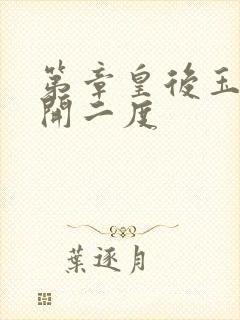 第章皇後玉
開二度
葉逐月